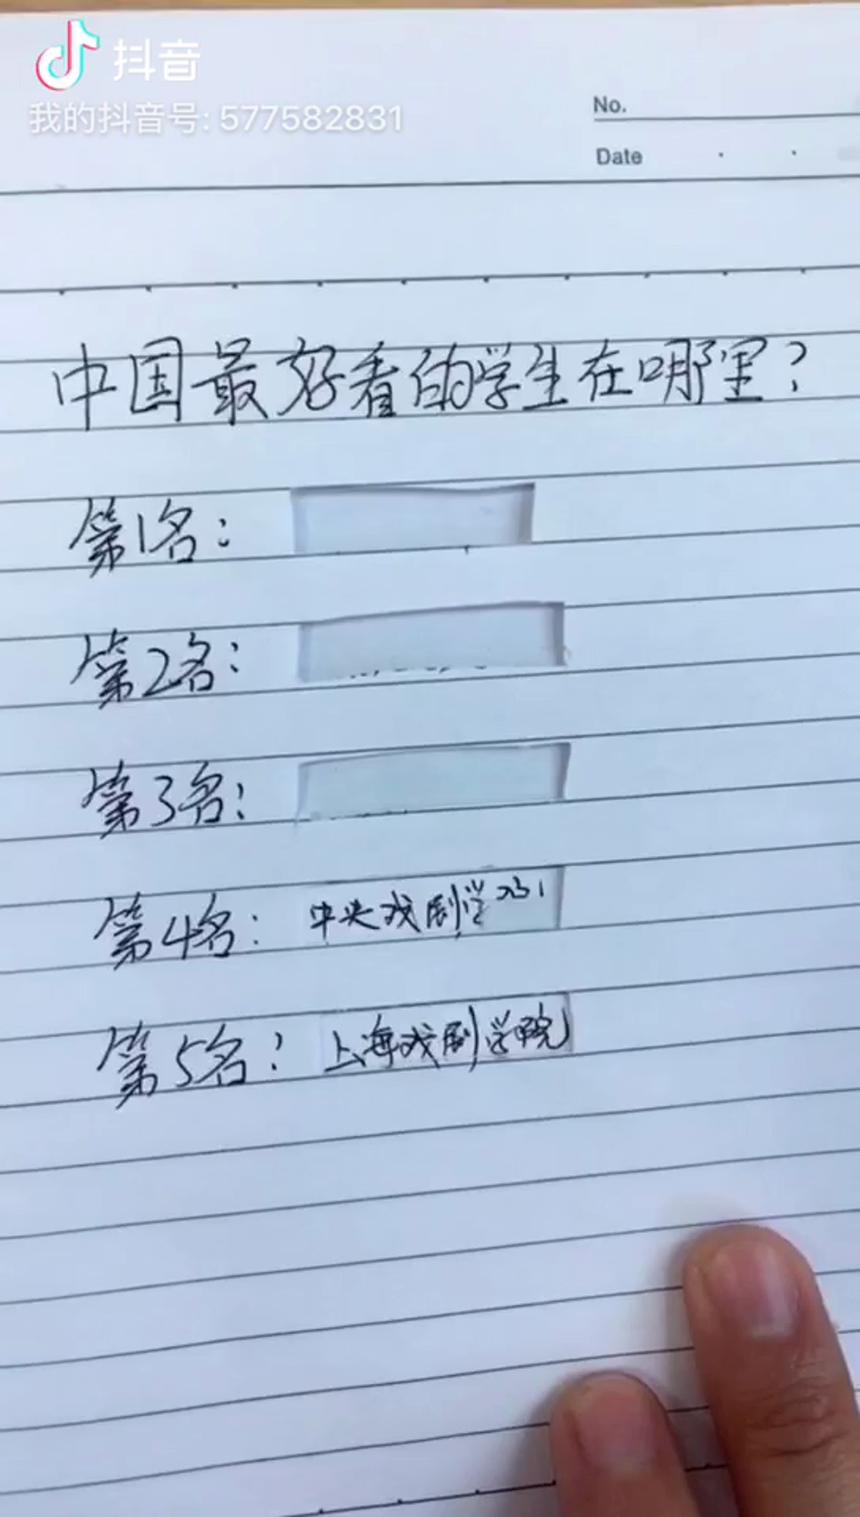 抖音
我的抖音号: 577582831
No.
Date
中国最好看的学生在哪里?
第1名:
第2名:
第3名:
第4名: 中央戏剧学院
第5名: 上海戏剧学院